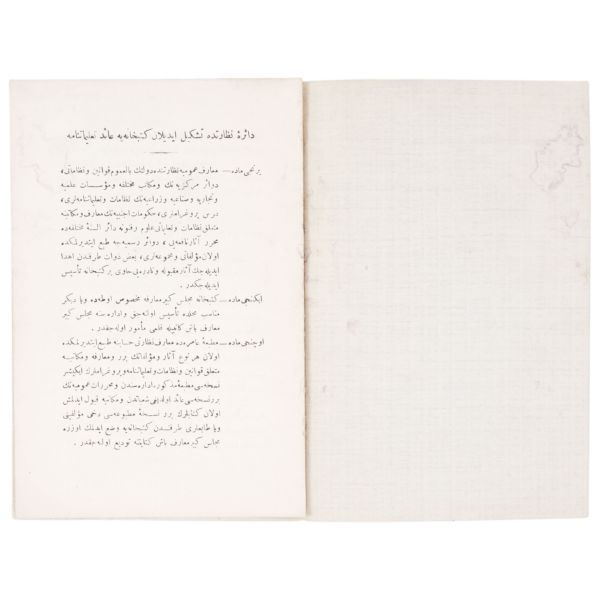 دائرهٔ نظارتده تشكيل ايديلان كتبخانه‌يه عائد تعليماتنامه
برنجى ماده — معارف عموميه نظارتنده دولتك بالعموم قوانين و نظاماتى،
دوائر مركزيه نك و مكاتب مختلفه و مؤسسات علميه
و تجاريه و صناعيه و زراعيه نك نظامات و تعليماتنامه لرى،
درس پروغراملرى، حكومات اجنبيه نك معارف و مكاتبنه
متعلق نظامات و تعليماتى علوم و فنونه دائر السنهٔ مختلفه ده
محرر آثار نافعه نى، دوائر رسميه جه طبع ايتديرلمكده
اولان مؤلفاتى و مجموعه لرى، بعض ذوات طرفندن اهدا
ايديله جك آثار مقبوله و نادره نى حاوى بر كتبخانه تأسيس
ايديله جكدر.
ايكنجى ماده — كتبخانه مجلس كبير معارفه مخصوص اوطه ده ويا ديكر
مناسب محلده تأسيس اولنه جق و اداره سنه مجلس كبير
معارف باش كتابتيله قلمى مأمور اوله جقدر.
اوچنجى ماده — مطبعهٔ عامره ده معارف نظارتى حسابنه طبع ايتديرلمكده
اولان هر نوع آثار و مؤلفاتك برر و معارفه و مكاتبه
متعلق قوانين و نظامات و تعليماتنامه و پروغراملرك ايكيشر
نسخه سى مطبعهٔ مذكور اداره سندن و محررات عموميه نك
برر نسخه سى عائد اولديغى شعباتدن و مكاتبه قبول ايدلمش
اولان كتابلرك برر نسخهٔ مطبوعه سى دخى مؤلفينى
ويا طابعلرى طرفندن كتبخانه يه وضع ايدلمك اوزره
مجلس كبير معارف باش كتابتنه توديع اوله جقدر.